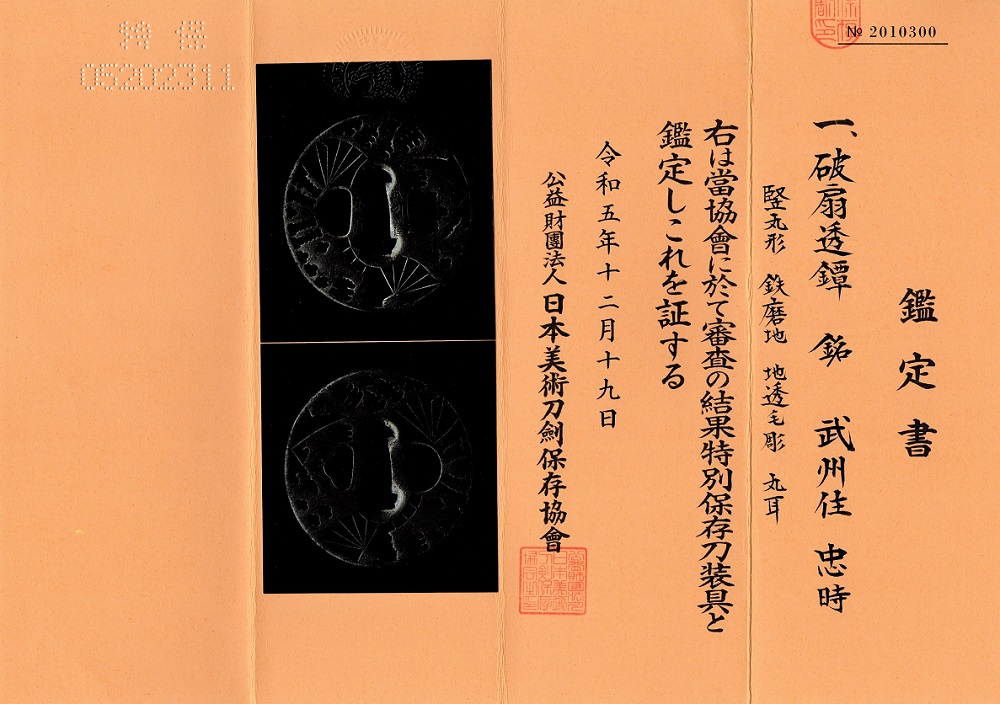 № 2010300
鑑定書
一、破扇透鐔 銘 武州住 忠時
竪丸形 鉄磨地 地透毛彫 丸耳
右は當協會に於て審査の結果特別保存刀装具と
鑑定しこれを証する
令和五年十二月十九日
公益財團法人 日本美術刀劍保存協會
特保
05202311